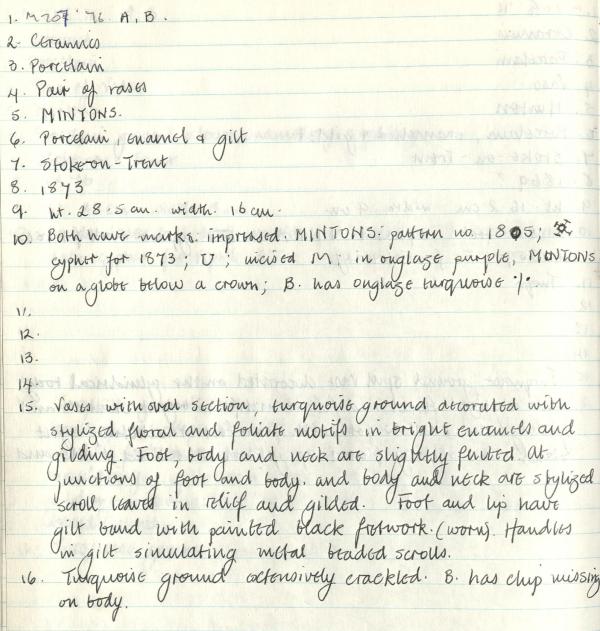 1. M207 '76 A, B.
2. Ceramics
3. Porcelain
4. Pair of vases
5. MINTONS.
6. Porcelain, enamel & gilt
7. Stoke-on-Trent
8. 1873
9. ht. 28.5 cm. width. 16 cm.
10. Both have marks: impressed. MINTONS: pattern no. 1805;
cypher for 1873; U; incised M; in onglaze purple, MINTONS
on a globe below a crown; B. has onglaze turquoise
11.
12.
13.
14.
15. Vases with oval section turquoise ground decorated with
stylized floral and foliate motifs in bright enamels and
gilding. Foot, body and neck are slightly fluted. At
junctions of foot and body. and body and neck are stylized
scroll leaves in relief and gilded. Foot and lip have
gilt band with painted black fretwork. (worn). Handles
in gilt simulating metal beaded scrolls.
16. Turquoise ground extensively crackled. B. has chip missing
on body.